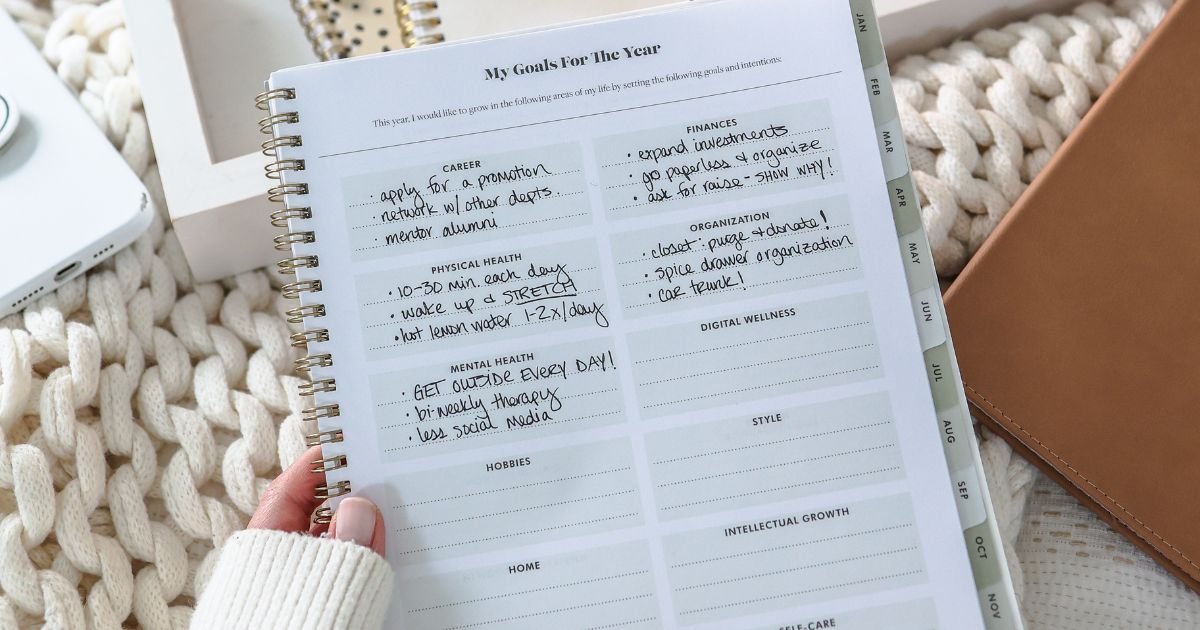 My Goals For The Year
This year, I would like to grow in the following areas of my life by setting the following goals and intentions:
CAREER
• apply for a promotion
• network w/ other depts.
• mentor alumni
PHYSICAL HEALTH
• 10-30 min. each day
• wake up & STRETCH
• hot lemon water 1-2x/day
MENTAL HEALTH
• GET OUTSIDE EVERY DAY!
• bi-weekly therapy
• less social media
HOBBIES
HOME
FINANCES
• expand investments
• go paperless & organize
• ask for raise - SHOW WHY!
ORGANIZATION
• closet: purge & donate!
• spice drawer organization
• car trunk!
DIGITAL WELLNESS
STYLE
INTELLECTUAL GROWTH
SELF-CARE
JAN
FEB
MAR
APR
MAY
JUN
JUL
AUG
SEP
OCT
NOV